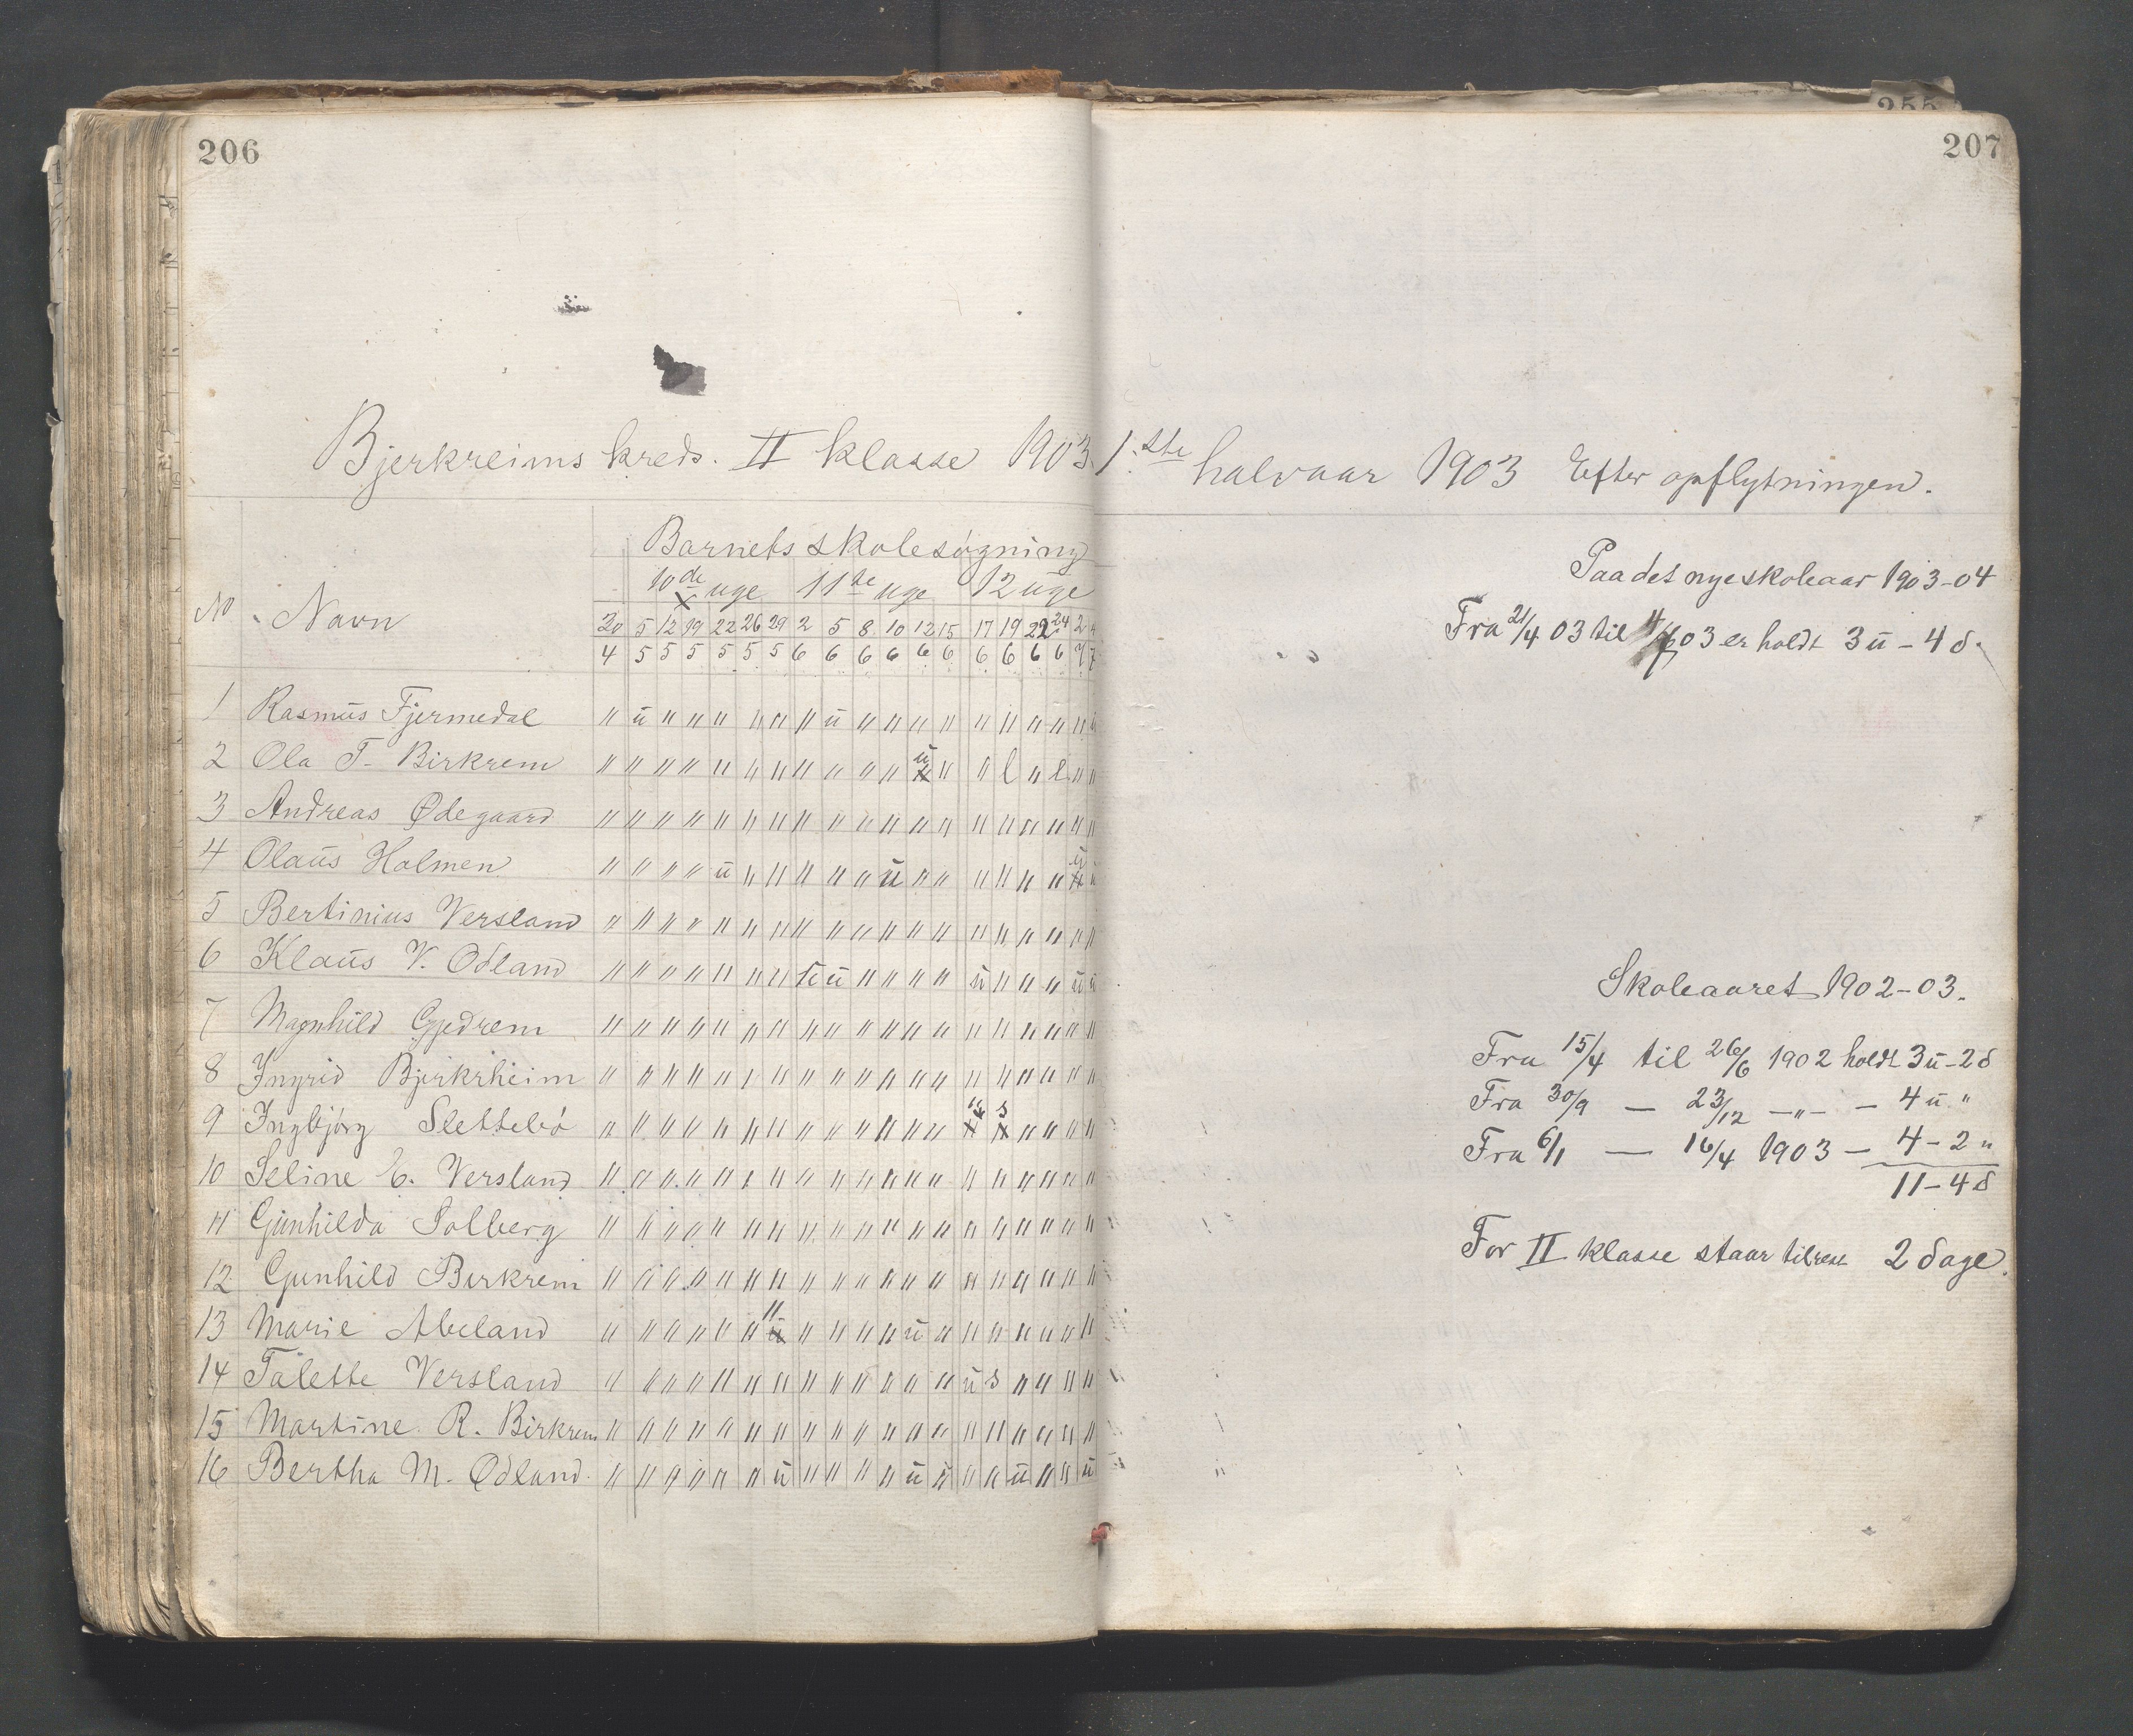 206
Bjerkreims kreds. II klasse 1903.
Barnets skolesøgning
10de uge 11te uge 12 uge
No Navn
30 5 12 19 22 26 29 2 5 8 10 12 15 17 19 22 24 2
4 5 5 5 5 5 5 6 6 6 6 6 6 6 6 6 6 7
1 Rasmus Fjermedal
2 Ola T. Birkrem
3 Andreas Ødegaard
4 Olaus Holmen
5 Bertinius Versland
6 Klaus V. Odland
7 Magnhild Gjedrem
8 Ingrid Bjerkrheim
9 Ingbjørg Slettebø
10 Seline E. Versland
11 Gunhilda Solberg
12 Gunhild Birkrem
13 Marie Abeland
14 Talette Versland
15 Martine R. Birkrem
16 Bertha M. Ødland
255
207
1.ste halvaar 1903 Efter opflytningen.
Paa det nye skoleaar 1903-04
Fra 21/4 03 til 03 er holdt 3 u - 4 d.
Skoleaaret 1902-03.
Fra 15/4 til 26/6 1902 holdt 3 u - 2 d
Fra 30/9 — 23/12 —„— — 4 u "
Fra 6/1 — 16/4 1903 — 4 - 2 "
11 - 4 d
For II klasse staar tilrest 2 dage.